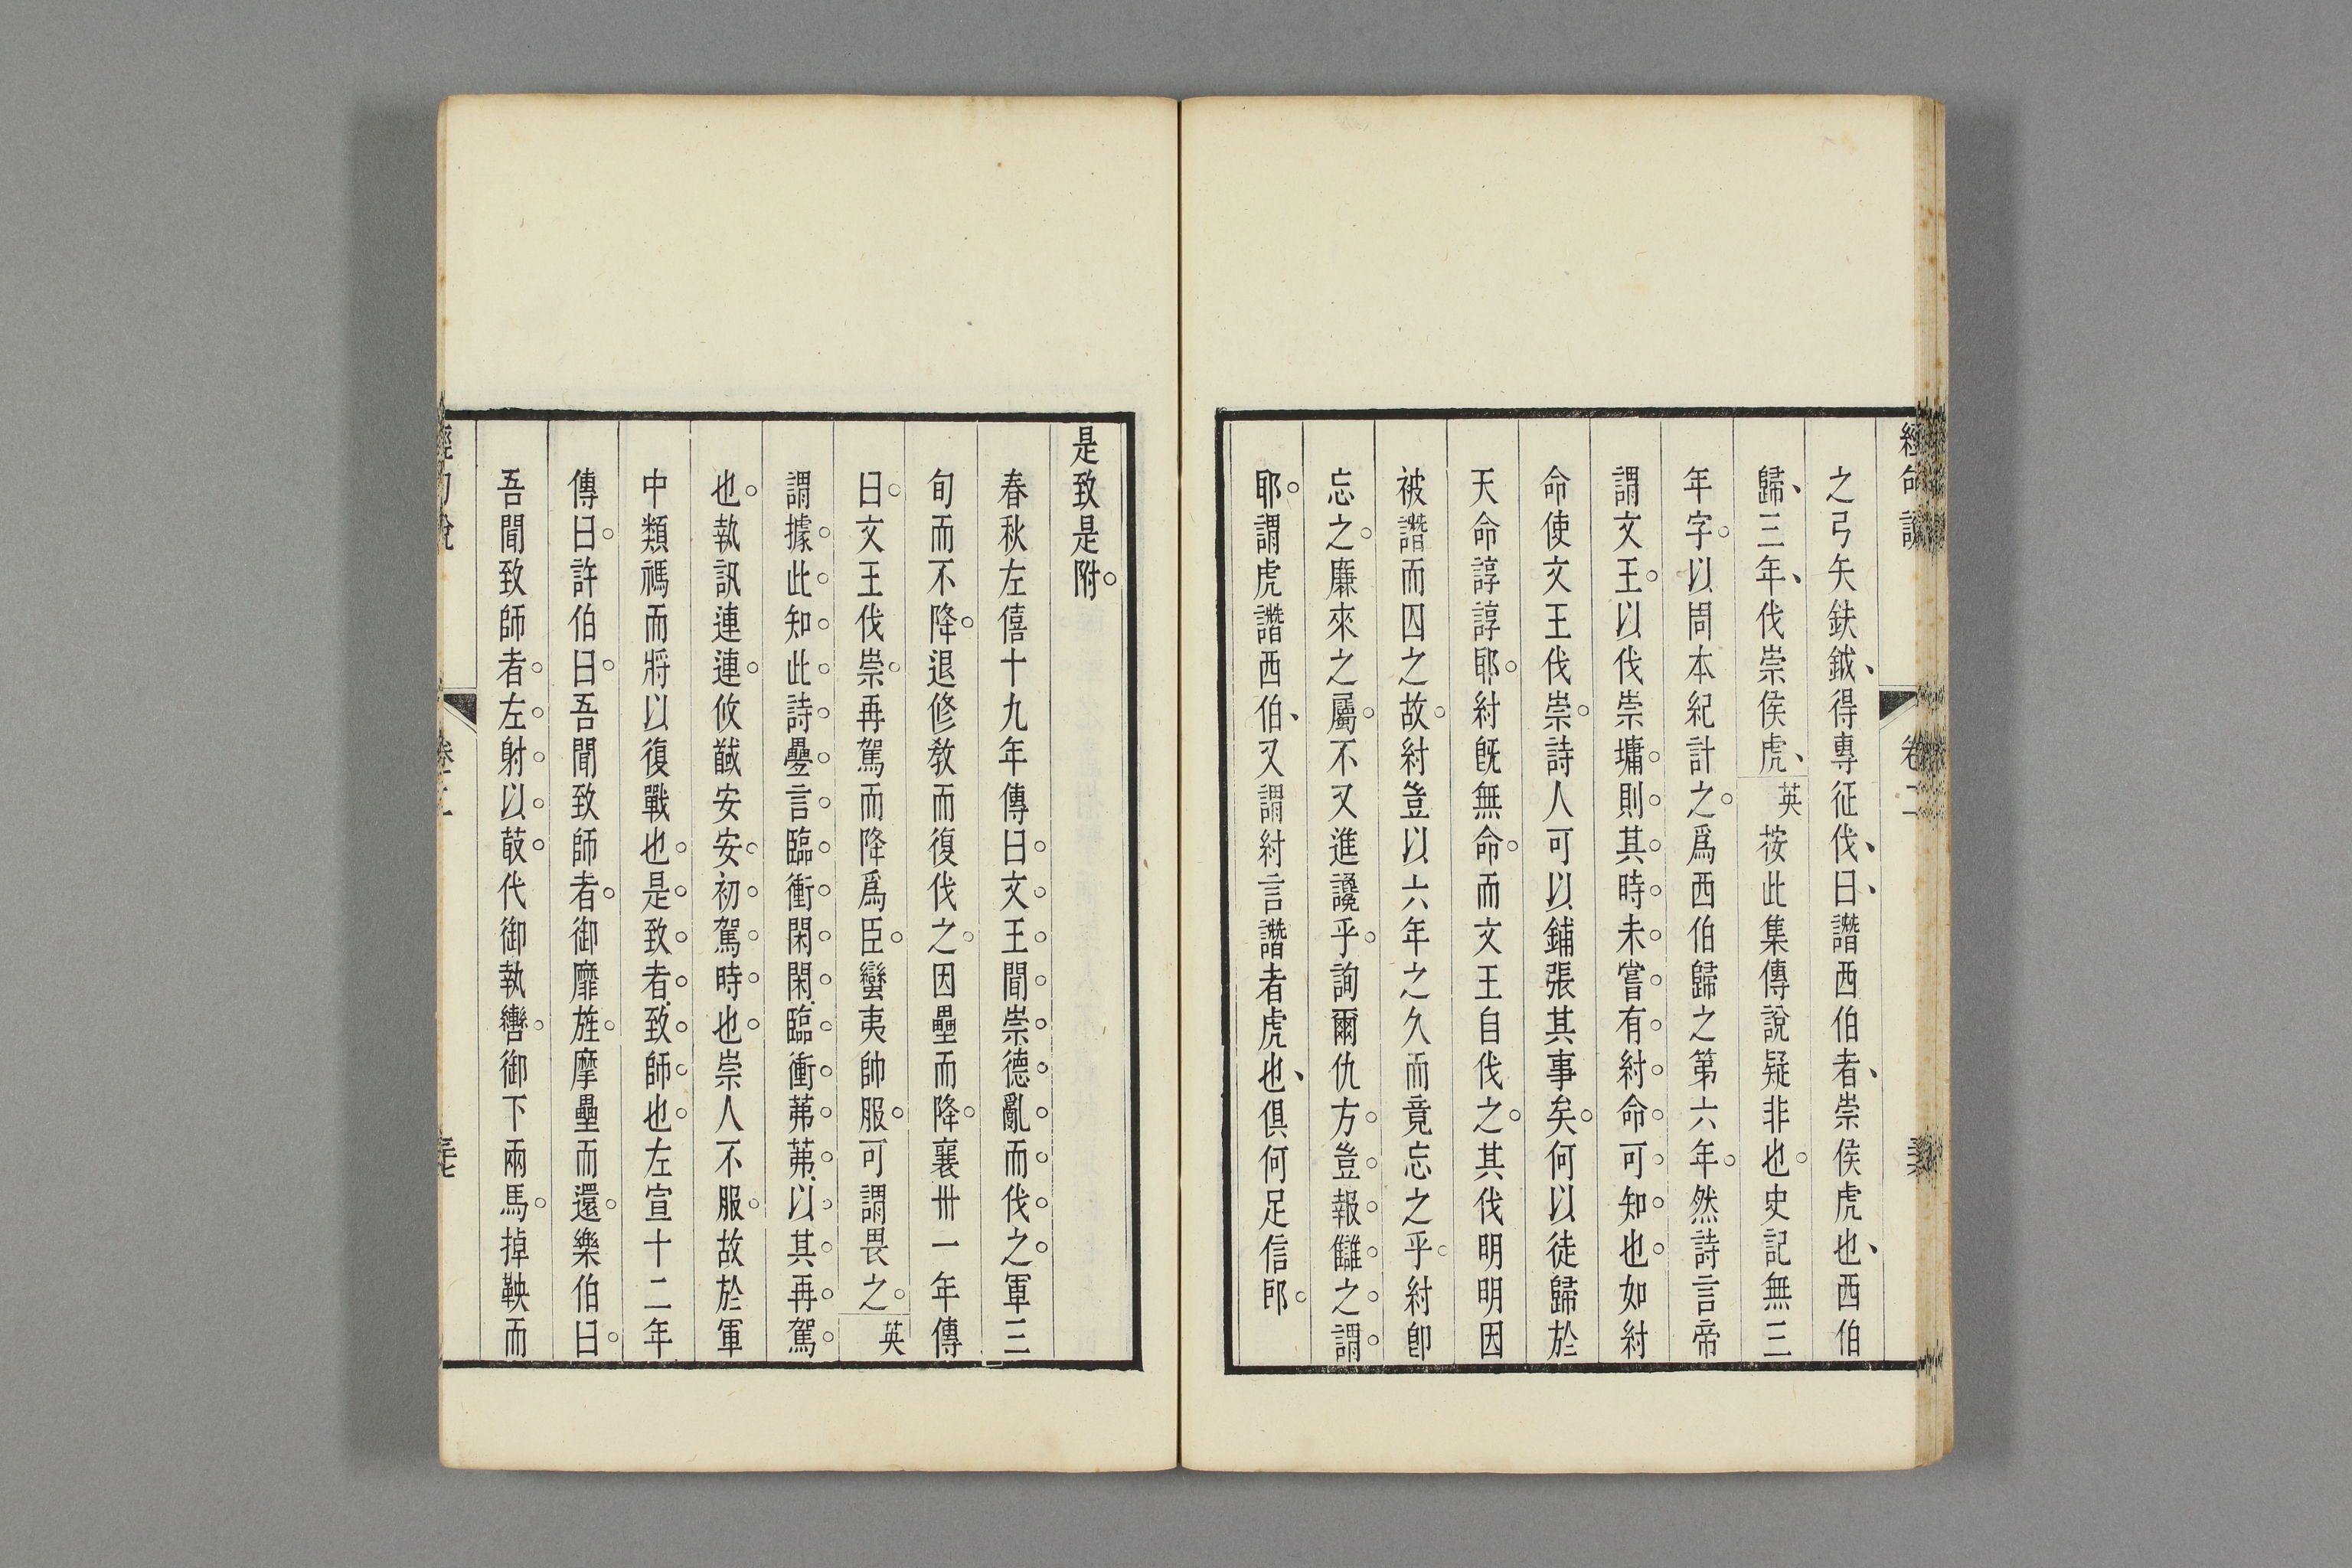 之弓矢鈇鉞、得專征伐、曰、譖西伯者、崇侯虎也、西伯
歸、三年、伐崇侯虎、英桉此集傳說疑非也。史記無三
年字。以周本紀計之。爲西伯歸之第六年。然詩言帝
謂文王。以伐崇墉。則。其。時。未。嘗。有。紂。命。可。知。也。如紂
命使文王伐崇。詩人可以鋪張其事矣。何以徒歸於
天命諄諄耶。紂旣無命。而文王自伐之。其伐明明因
被譖而囚之故。紂豈以六年之久而竟忘之乎。紂卽
忘之。廉來之屬。不又進讒乎。詢爾仇方。豈。報。讎。之。謂。
耶。謂虎譖西伯、又謂紂言譖者虎也、俱何足信郎。
是致是附。
春秋左僖十九年傳曰。文。王。聞。崇。德。亂。而。伐。之。軍三
旬而不降。退修敎而復伐之。因壘而降。襄卅一年傳
曰。文王伐崇。再駕而降爲臣。蠻夷帥服。可謂畏之。英
謂據。此。知。此。詩。壘。言。臨。衝。閑。閑。臨。衝。茀。茀。以。其。再。駕。
也。執訊連連。攸馘安安。初。駕。時。也。崇人不服。故於軍
中類禡而將以復戰也。是。致。者。致。師。也。左宣十二年
傳曰。許伯曰。吾聞致師者。御靡旌。摩壘而還。樂伯曰。
吾聞致師者。左。射。以。菆。代御執轡。御下兩馬。掉鞅而
經句說
卷二